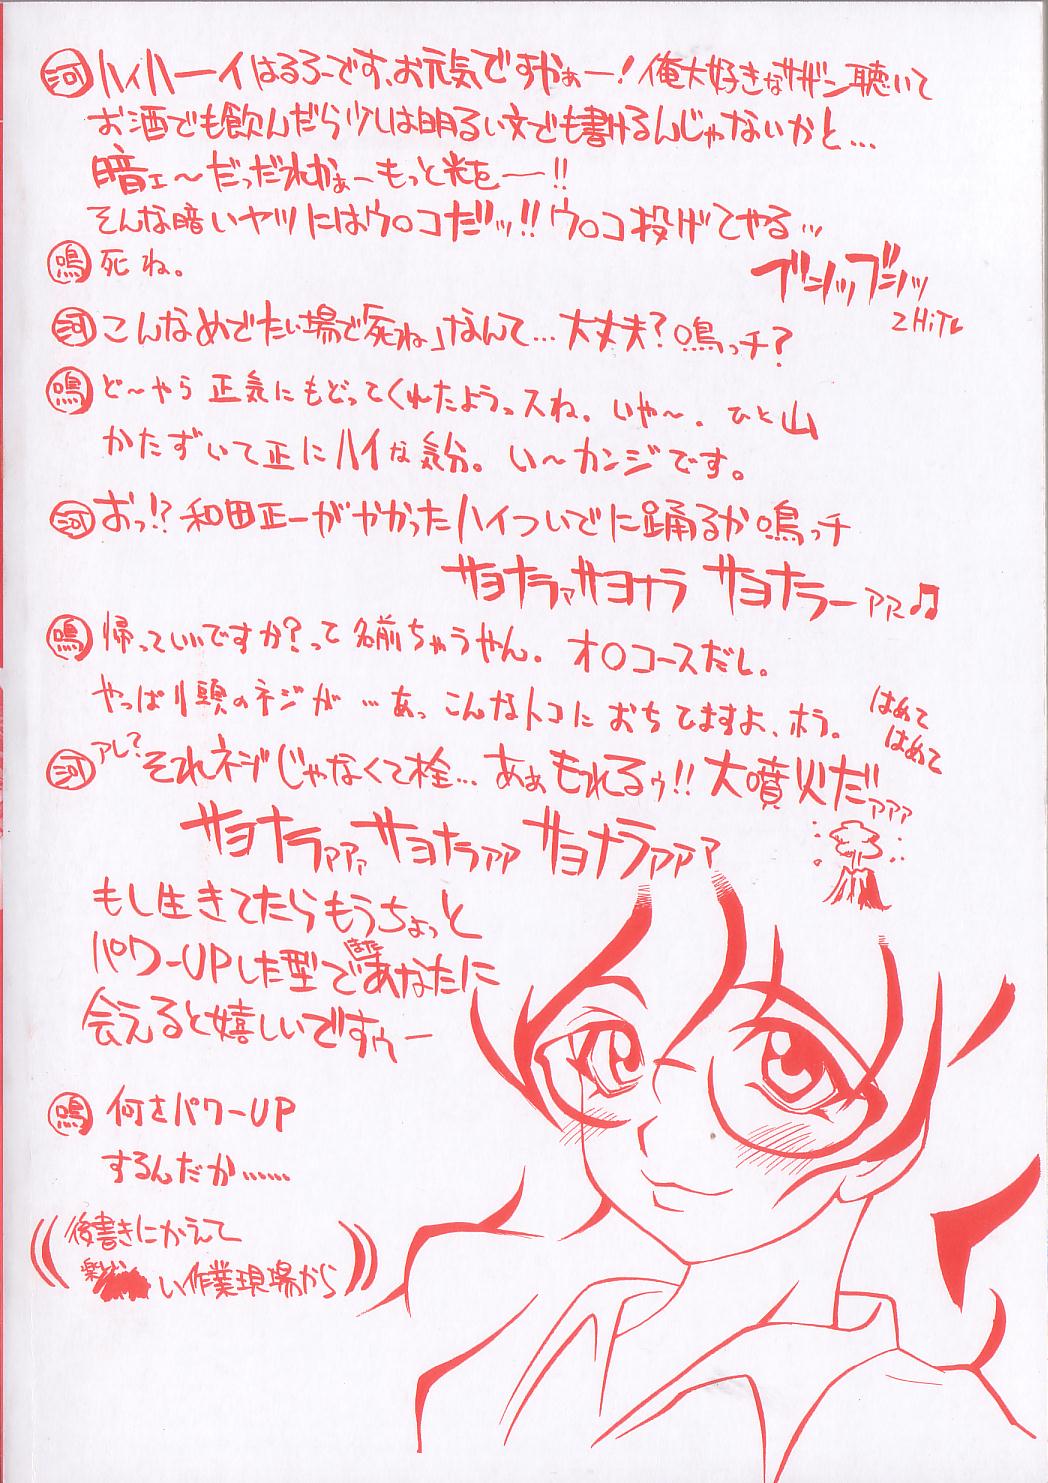 河 ハイハーイはるろーです、お元気ですかぁー!俺大好きなサザン聴いて
お酒でも飲んだら少しは明るい文でも書けるんじゃないかと…
暗ェ〜だっだれかぁーもっと光をー!!
そんな暗いヤツにはウ○コだッ!!ウ○コ投げてやる…
ブシッブシッ
2HiTレ
鳴 死ね。
河 こんなめでたい場で「死ね」なんて…大丈夫?鳴っチ?
鳴 ど〜やら正気にもどってくれたようっスね。いや〜、ひと山
かたずいて正にハイな気分。い〜カンジです。
河 おっ!?和田正一がやかったハイついでに踊るか鳴っチ
サヨナラァサヨナラ サヨナラーァァ♫
鳴 帰っていいですか?って名前ちゃうやん。オ○コースだし。
やっぱり頭のネジが…あっこんなトコにおちてますよ、ホラ。
はめて
はめて
河 アレ?それネジじゃなくて栓…あぁもれるゥ!!大噴火だァァァ
サヨナラァァァサヨナラァァサヨナラァァァ
もし生きてたらもうちょっと
パワーUPした型であなたに
会えると嬉しいですゥー
鳴 何をパワーUP
するんだか……
後書きにかえて
楽しい作業現場から